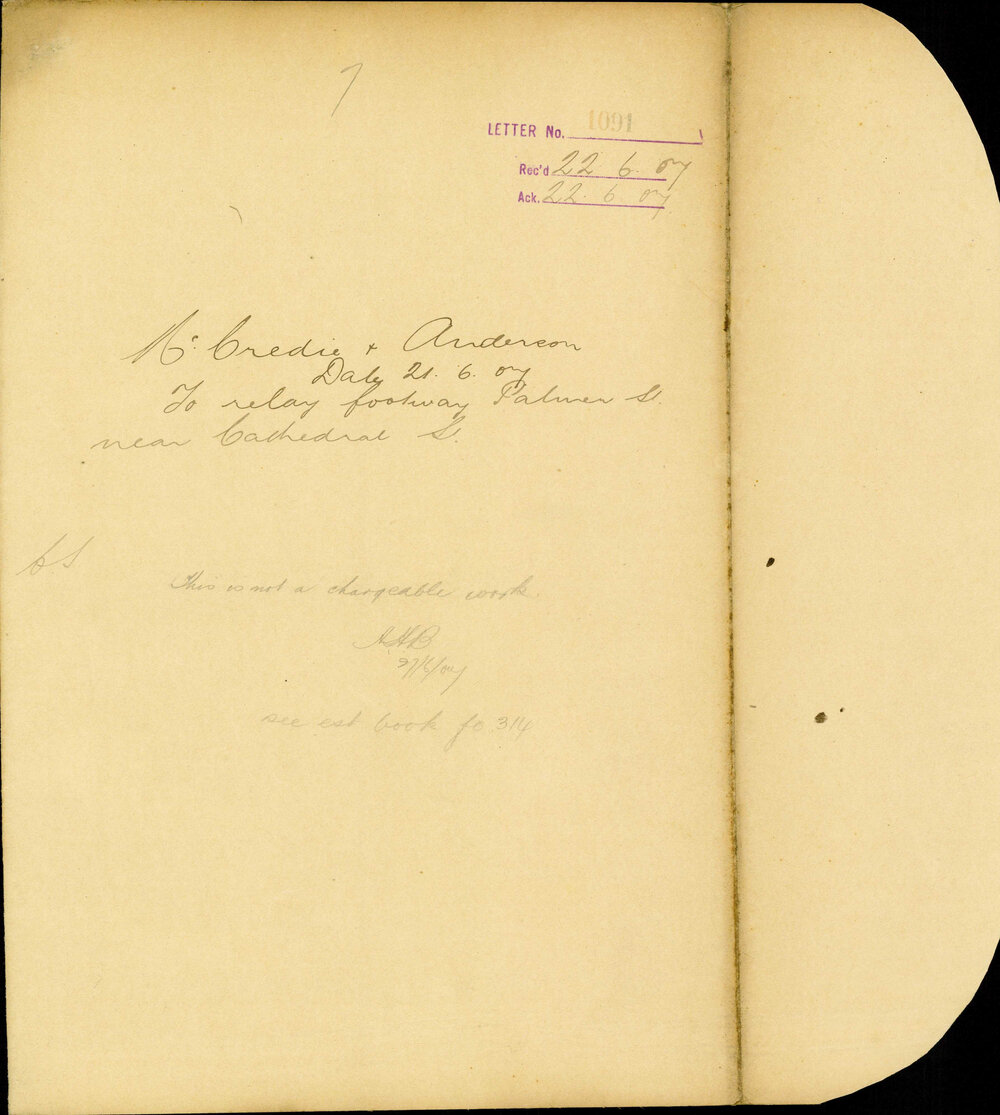 LETTER No. 1091
Rec'd 22 6. 07
Ack. 22. 6 07
Mc Credie & Anderson
Date 21. 6. 07
To relay footway Palmer St.
near Cathedral St.
This is not a chargeable work
A.H.B
27/6/07
see est book fo. 314